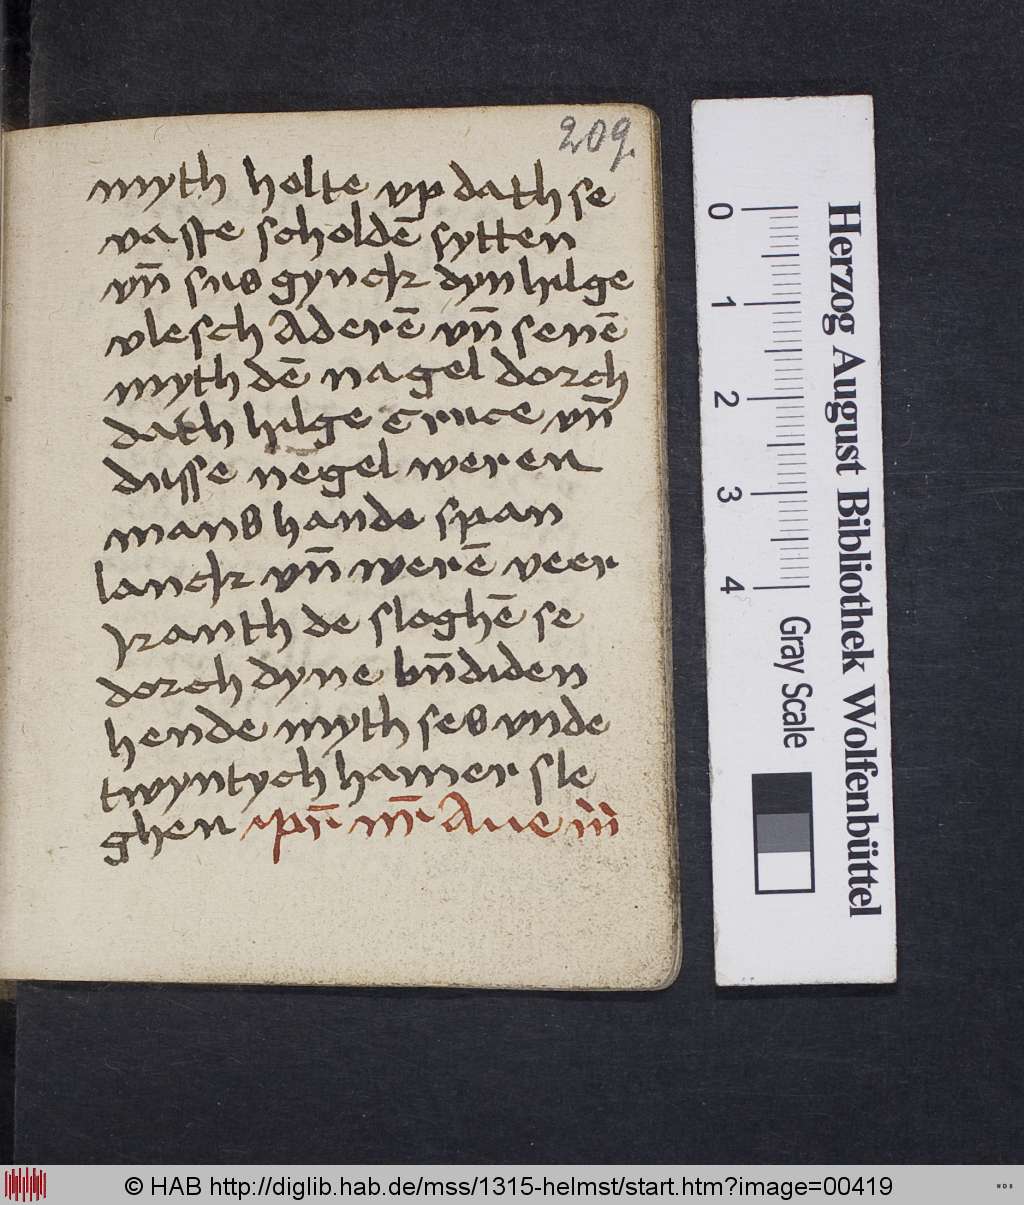 209.
myth holte vp dath se
vaste scholdē sytten
vn̄ sus gynck dyn hilge
vlesch Aderē vn̄ senē
myth dē nagel dorch
dath hilge cruce vn̄
dusse negel weren
mans hande span
lanck vn̄ werē veer
kanth de sloghē se
dorch dyne bn̄diden
hende myth ses vnde
twyntych hamer sle
ghen pr̄ nr̄ Aue
Herzog August Bibliothek Wolfenbüttel
0 1 2 3 4 Gray Scale
© HAB http://diglib.hab.de/mss/1315-helmst/start.htm?image=00419